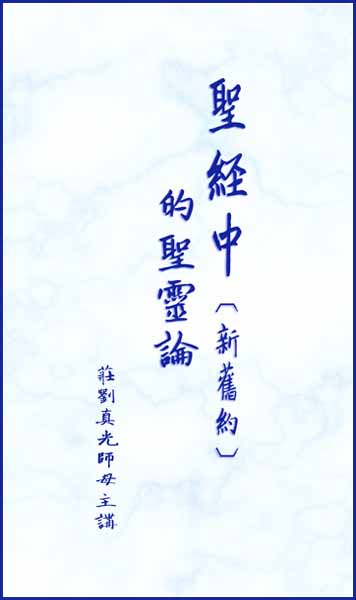 聖経中〔新舊約〕
的聖靈論
莊劉真光師母主講